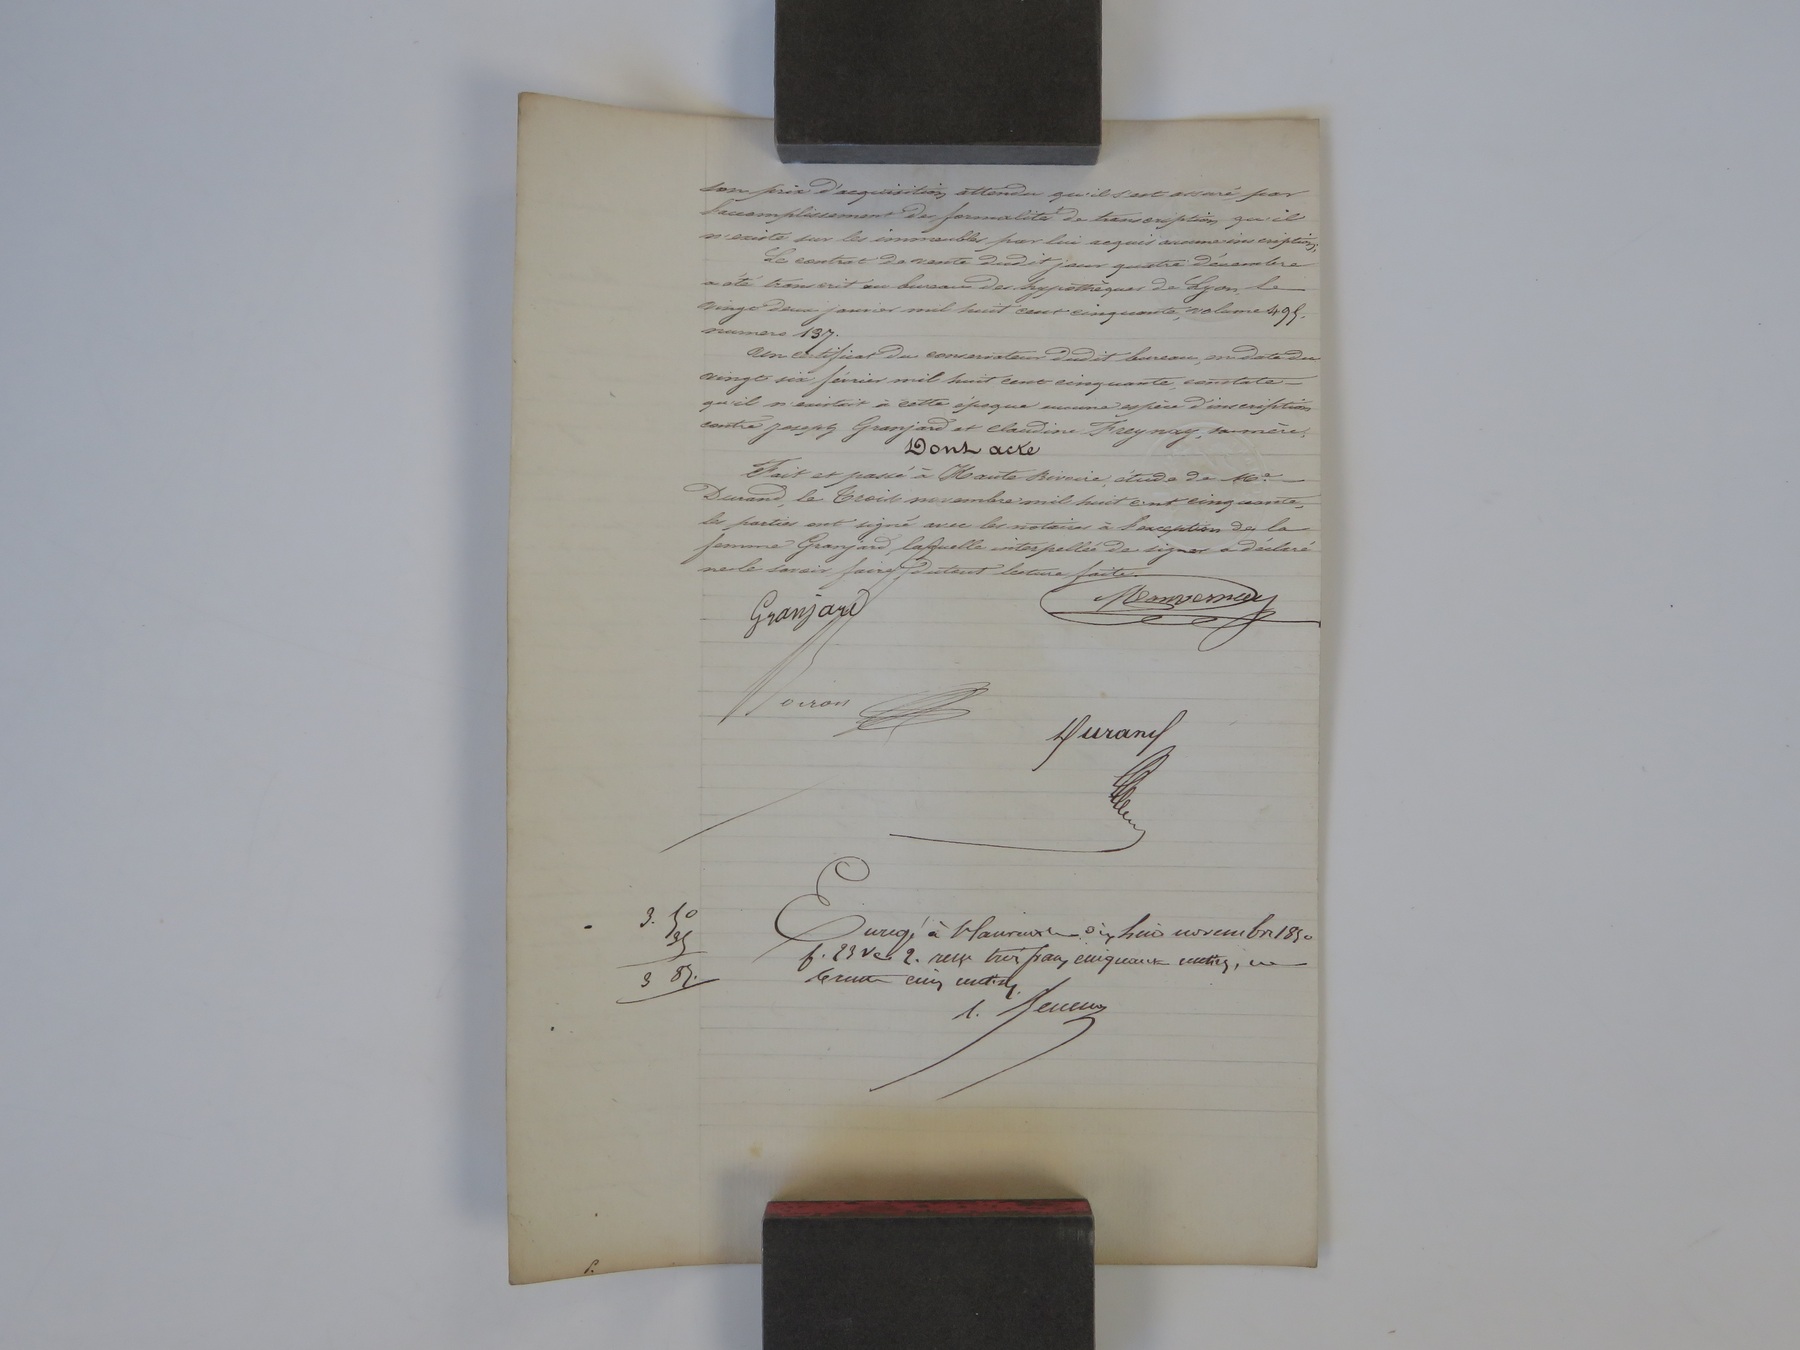 son prix d'acquisition, attendu qu'il s'est assuré, par
l'accomplissement des formalités de transcription, qu'il
n'existe sur les immeubles par lui acquis aucune inscription,
Le contrat de vente dudit jour quatre décembre
a été transcrit au bureau des hypothèques de Lyon, le
vingt deux janvier mil huit cent cinquante, volume 495.
numero 137.
Un certificat du conservateur dudit bureau, en date du
vingt six février mil huit cent cinquante, constate
qu'il n'existait à cette époque aucune espèce d'inscription
contre Joseph Granjard et Claudine Freynay, sa mère.
Dont acte
Fait et passé à Haute Rivoire, étude de Me
Durand, le Trois novembre mil huit cent cinquante,
les parties ont signé avec les notaires à l'exception de la
femme Granjard, laquelle interpellée de signer a déclaré
ne le savoir faire, lecture faite.
Granjard
Voiron
Durand
3. 50
35
3 85.
Enregé à St Laurent dix huit novembre 1850
f. 23 Vo c 2. reçu trois francs cinquante centimes,
trente cinq centimes.